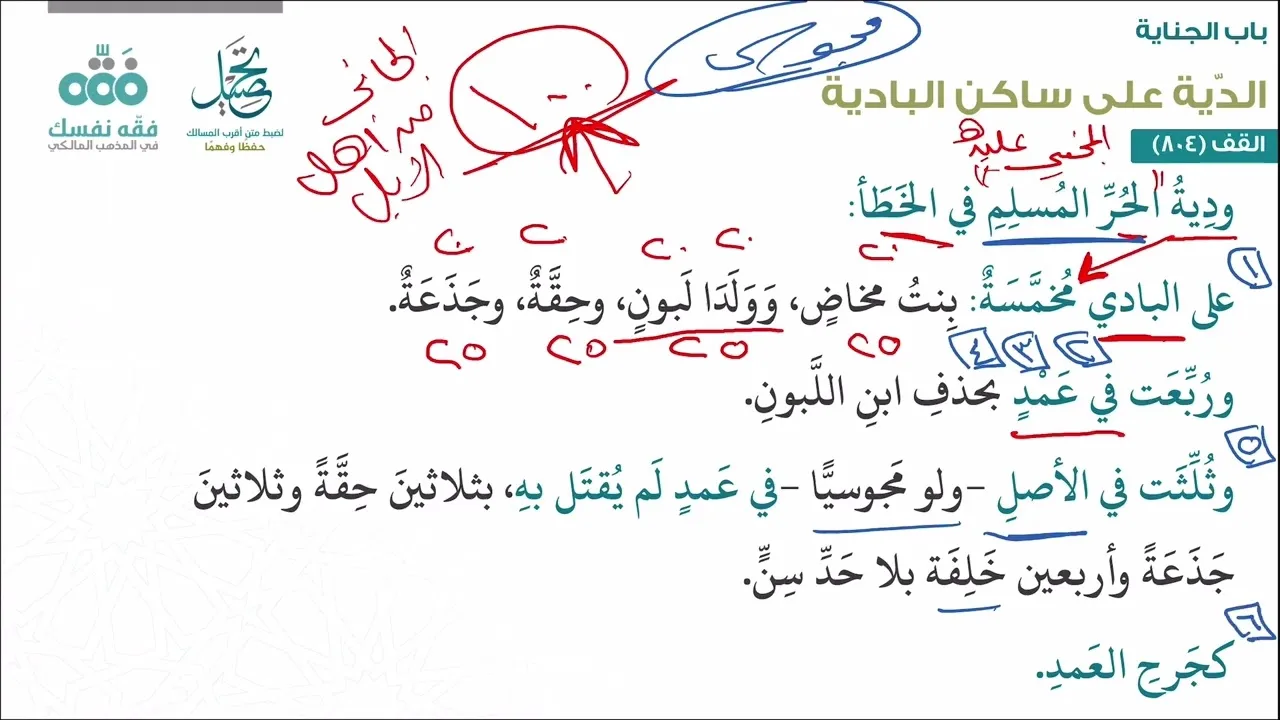 باب الجناية
الدّية على ساكن البادية
القف (٨٠٤)
تحصيل
لضبط متن أقرب المسالك
حفظًا وفهمًا
فقّه
فقّه نفسك
في المذهب المالكي
مجوسي
الجاني
من أهل
الإبل
المجني عليه
ودِيةُ الحُرِّ المُسلِمِ في الخَطَأ:
١
٢٠ ٢٠ ٢٠ ٢٠ ٢٠
على البادي مُخمَّسَةٌ: بِنتُ مخاضٍ، وَوَلَدَا لَبونٍ، وحِقَّةٌ، وجَذَعَةٌ.
٢ ٣ ٤
٢٥ ٢٥ ٢٥ ٢٥
ورُبِّعَت في عَمْدٍ بحذفِ ابنِ اللَّبونِ.
٥
وثُلِّثَت في الأصلِ -ولو مَجوسيًّا -في عَمدٍ لَم يُقتَل بهِ، بثلاثينَ حِقَّةً وثلاثينَ
جَذَعَةً وأربعين خَلِفَة بلا حَدِّ سِنٍّ.
٦
كجَرحِ العَمدِ.